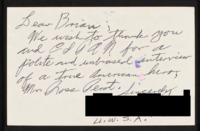 Dear Brian:
We wish to thank you
and CSPAN for a
polite and unbiased interview
of a true American hero,
Mr. Ross Perot. Sincerely,
U.S.A.